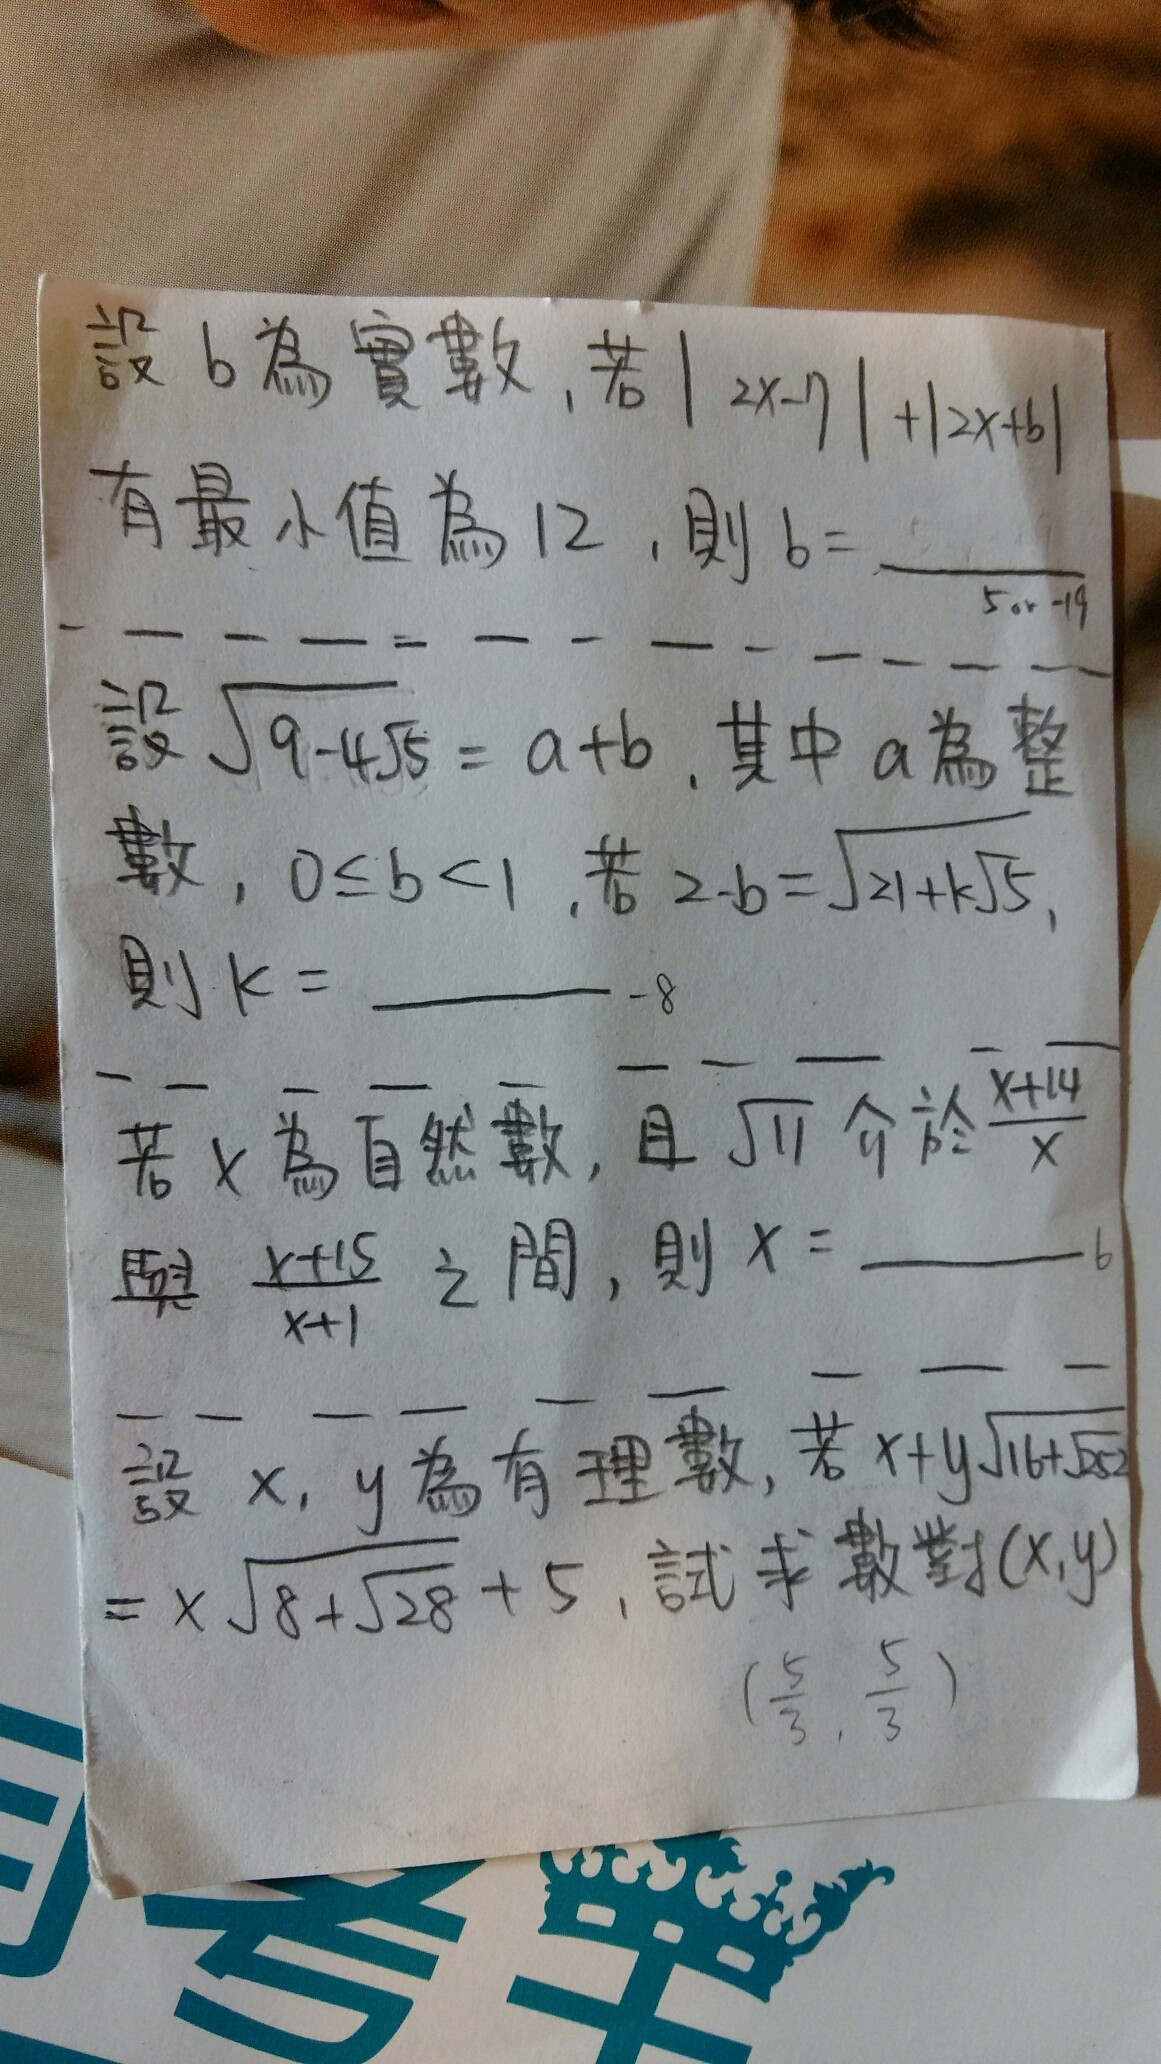 設 b 為實數,若|2x-7|+|2x+b|
有最小值為12,則 b=____
5 or -19
設√(9-4√5) = a+b,其中 a 為整
數,0≤b<1,若 2-b=√(21+k√5),
則 k = ____ -8
若 x 為自然數,且 √11 介於 (x+14)/x
與 (x+15)/(x+1) 之間,則 x = ____ 6
設 x, y 為有理數,若 x+y√(16+√252)
= x√(8+√28) + 5,試求數對(x,y)
(5/3, 5/3)